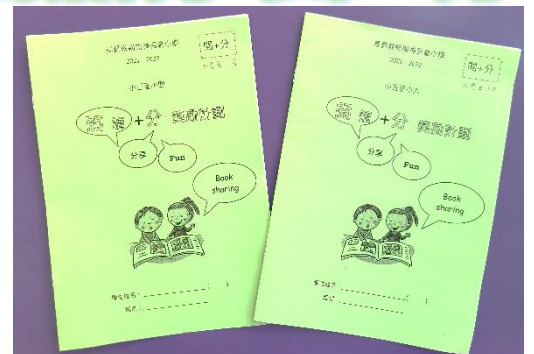 2021 - 2022
閱+分
閱讀+分 獎勵計劃
分享
Fun
Book
sharing
學生姓名：( )
班別：
2021 - 2022
閱+分
小五至小六
閱讀+分 獎勵計劃
分享
Fun
Book
sharing
學生姓名：( )
班別：